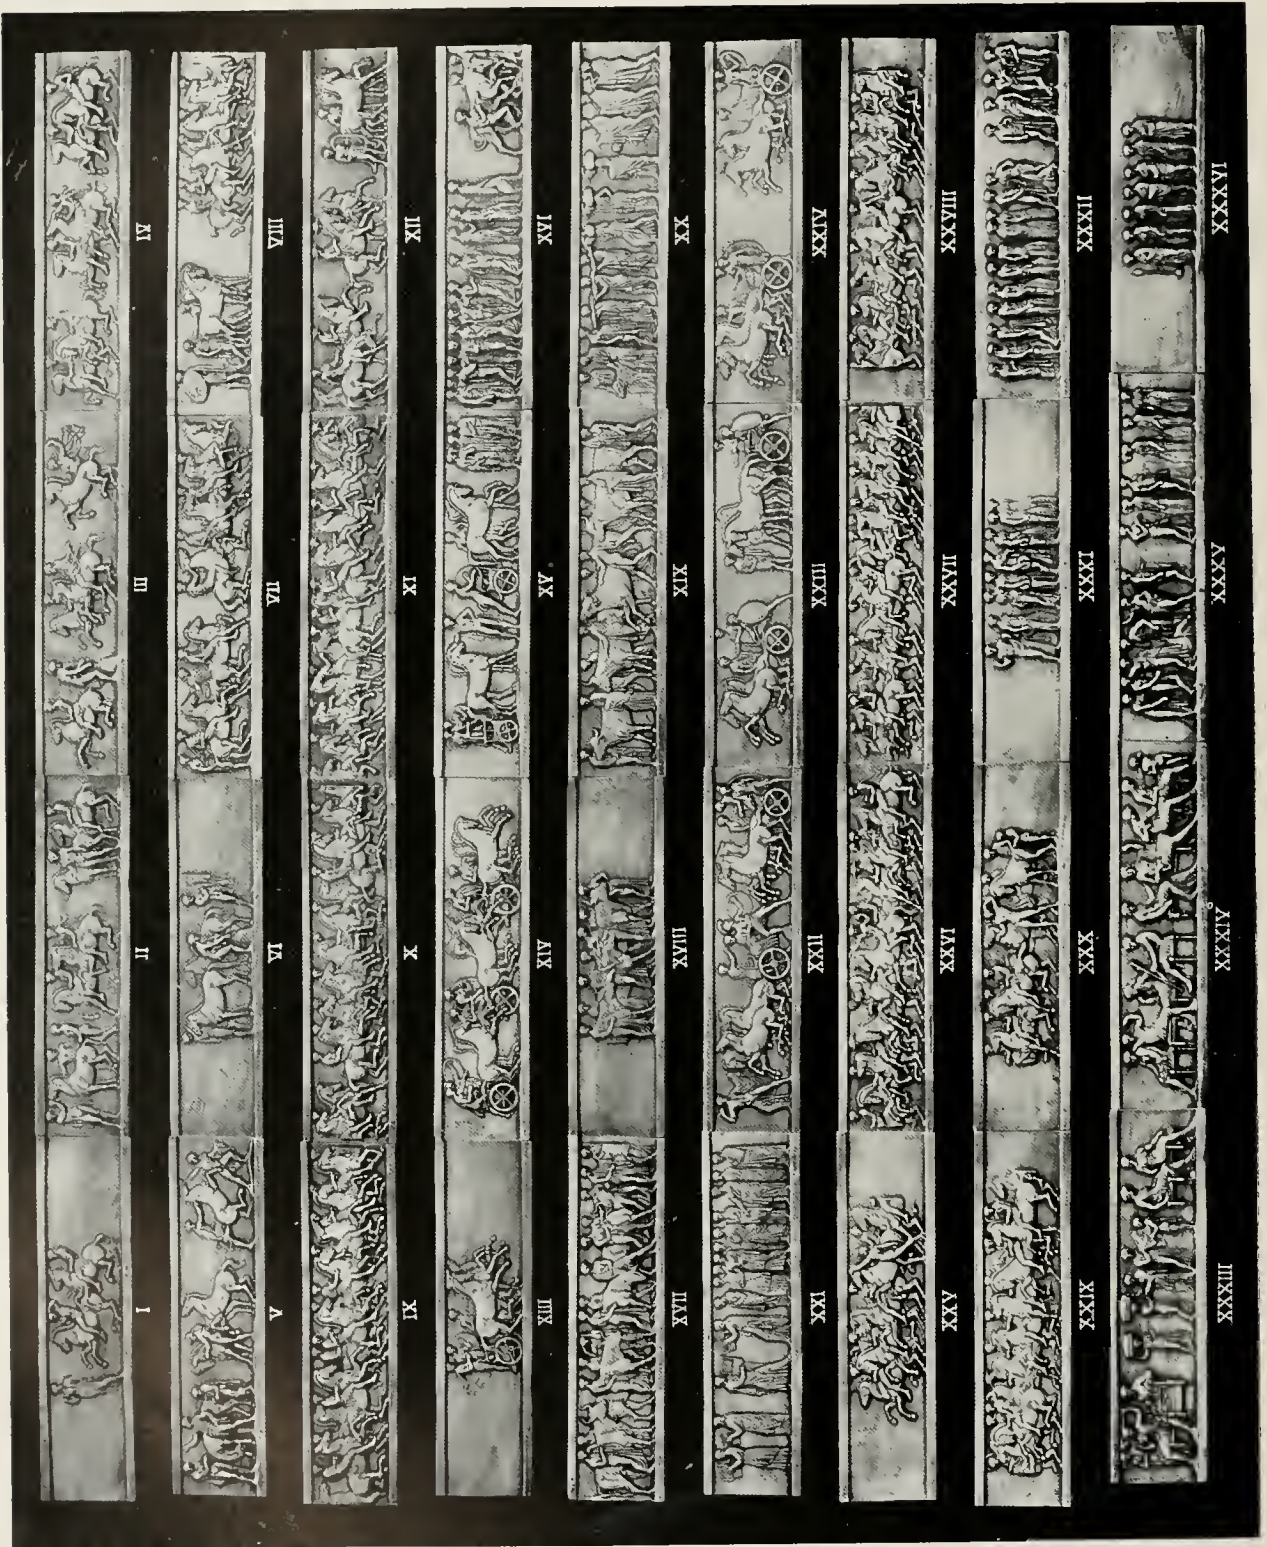 I II III IV
V VI VII VIII
IX X XI XII
XIII XIV XV XVI
XVII XVIII XIX XX
XXI XXII XXIII XXIV
XXV XXVI XXVII XXVIII
XXIX XXX XXXI XXXII
XXXIII XXXIV XXXV XXXVI